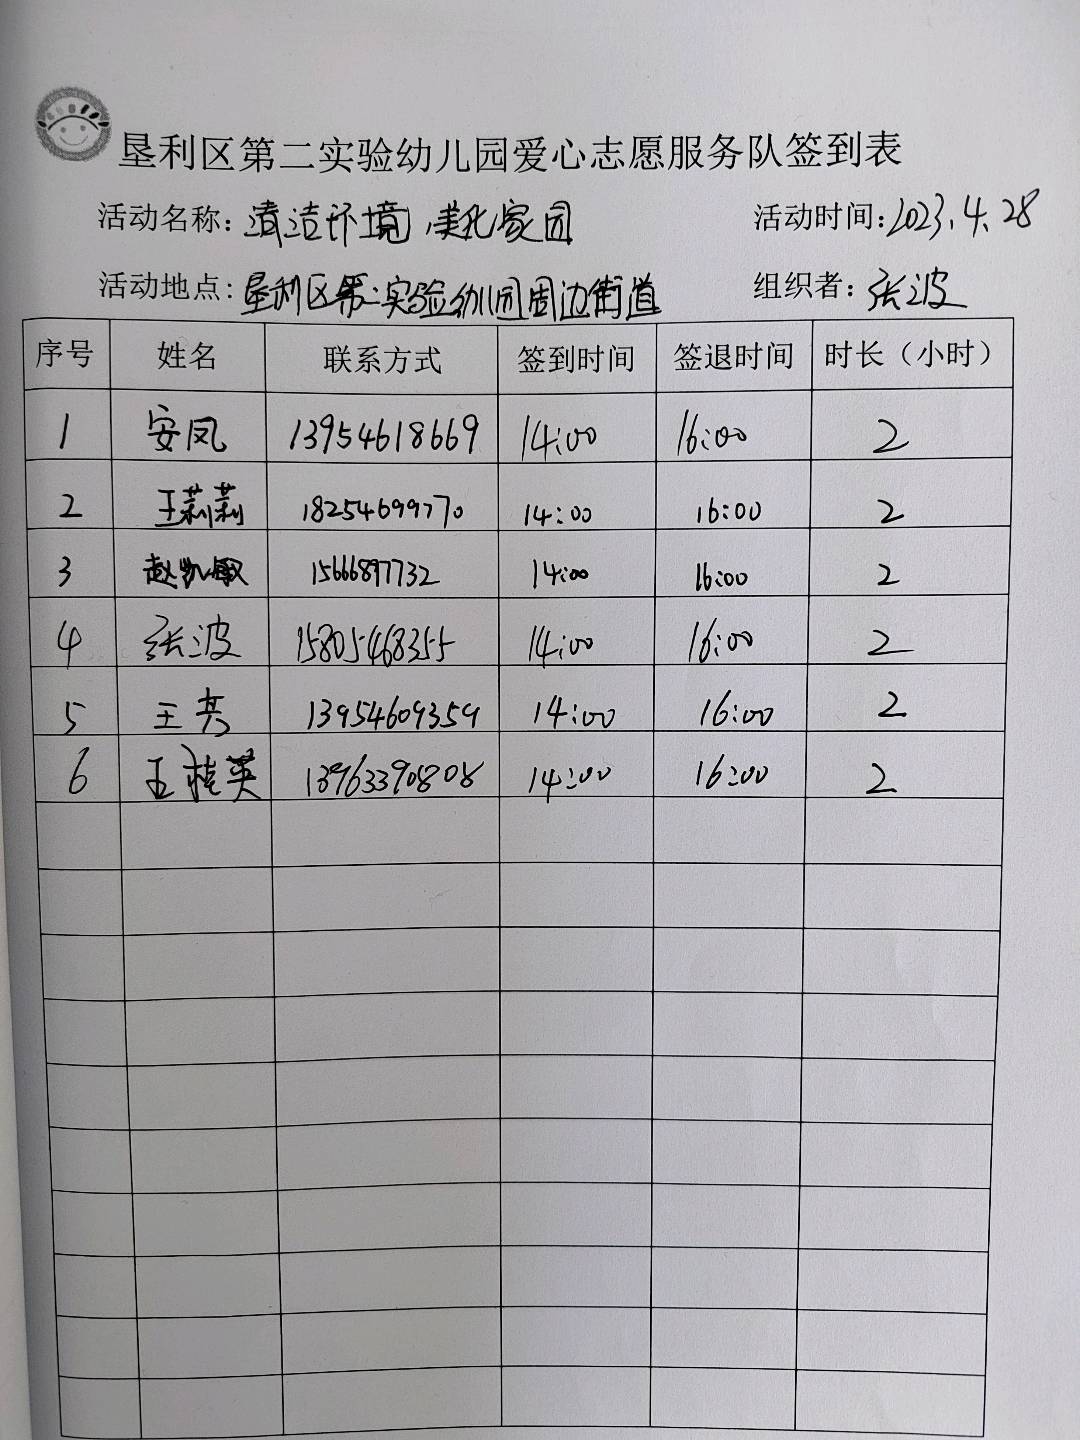 垦利区第二实验幼儿园爱心志愿服务队签到表
活动名称：清洁环境，美化家园 活动时间：2023.4.28
活动地点：垦利区第二实验幼儿园周边街道 组织者：张波
序号 姓名 联系方式 签到时间 签退时间 时长（小时）
1 安凤 13954618669 14:00 16:00 2
2 王莉莉 18254699770 14:00 16:00 2
3 赵凯敏 15666897732 14:00 16:00 2
4 张波 15805468355 14:00 16:00 2
5 王芳 13954609359 14:00 16:00 2
6 王桂英 13963390808 14:00 16:00 2